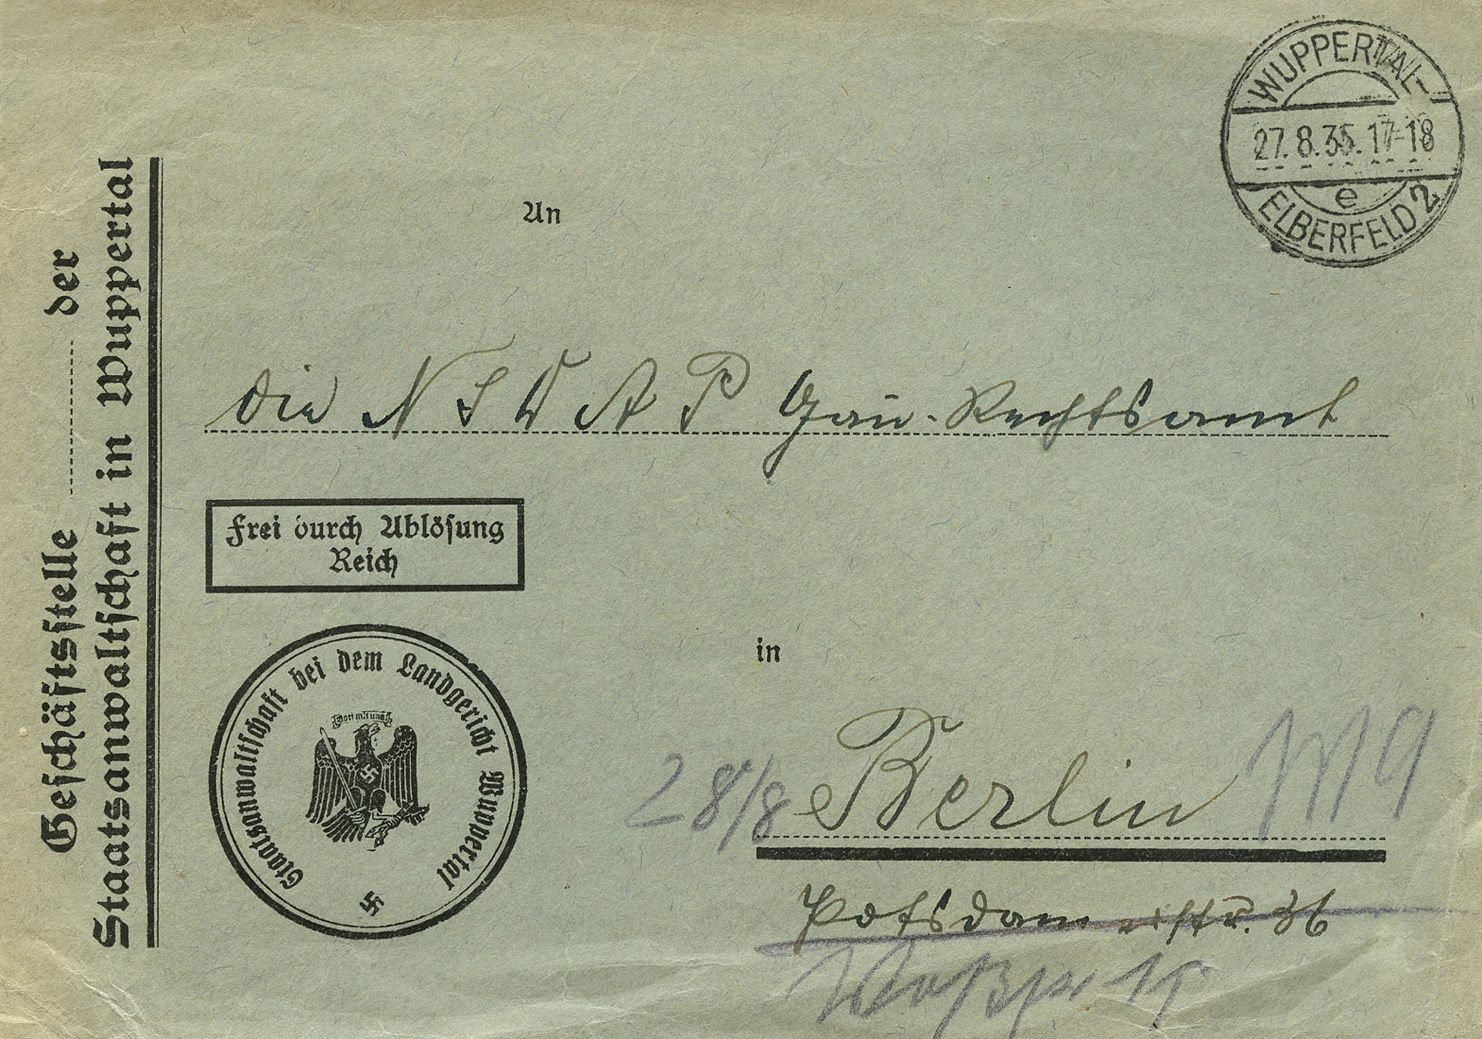 WUPPERTAL-
27.8.35.17-18
e
ELBERFELD 2
Geschäftsstelle ........ der
Staatsanwaltschaft in Wuppertal
An
die N S D A P Gau-Rechtsamt
Frei durch Ablösung
Reich
Staatsanwaltschaft bei dem Landgericht Wuppertal
Gott mit uns
in
28/8 Berlin W 9
Potsdamerstr. 36